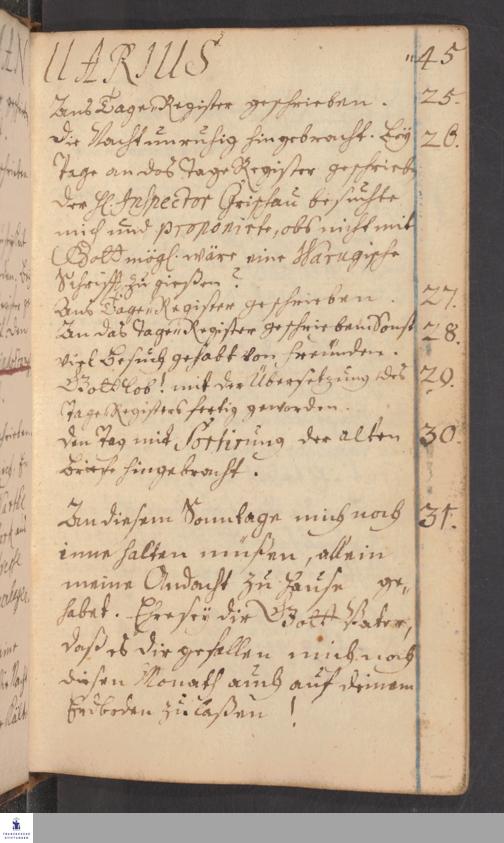 UARIUS
"45
Ans Tage-Register geschrieben. 25.
Die Nacht unruhig hingebracht. Bey 26.
Tage an das Tage Register geschrieben
der H. Inspector Grischau besuchte
mich und proponirte, obs nicht mit
Gott mögl. wäre eine Warugische
Schrifft zu gießen?
Ans Tage-Register geschrieben. 27.
An das Tage-Register geschrieben. Sonst 28.
viel Besuch gehabt von Freunden.
Gott Lob! mit der Übersetzung des 29.
Tage Registers fertig geworden.
Den Tag mit Sortirung der alten 30.
Briefe hingebracht.
An diesem Sonntage mich noch 31.
inne halten müßen, allein
meine Andacht zu Hause ge-
habet. Ehre sey dir Gott Vater,
daß es dir gefallen mich noch
diesen Monath auch auf deinem
Erdboden zu laßen!
FRANCKESCHE
STIFTUNGEN